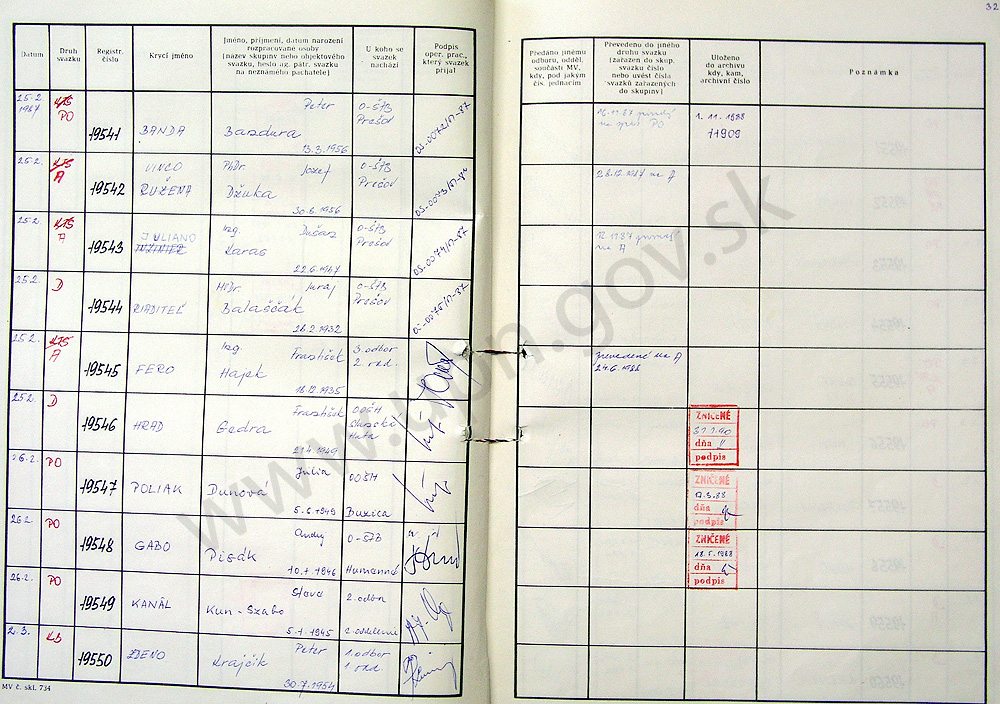 32
Datum
Druh
svazku
Registr.
číslo
Krycí jméno
Jméno, příjmení, datum narození
rozpracované osoby
(název skupiny nebo objektového
svazku, heslo ag. pátr. svazku
na neznámého pachatele)
U koho se
svazek
nachází
Podpis
oper. prac.,
který svazek
přijal
Předáno jinému
odboru, odděl.
součásti MV.
kdy, pod jakým
čís. jednacím
Převedeno do jiného
druhu svazku
(zařazen do skup.
svazku číslo
nebo uvést čísla
svazků zařazených
do skupiny)
Uloženo
do archivu
kdy, kam,
archivní číslo
Poznámka
25.2.
1987
KTS
PO
19541
BANDA
Peter
Bandura
13.3.1956
O-ŠTB
Prešov
OS-0072/17-87
na PO
1. 11. 1988
11909
25.2.
KTS
A
19542
RUŽENA
PhDr.
Jozef
Džuka
30.6.1956
O-ŠTB
Prešov
28.12.1987 na A
25.2.
KTS
A
19543
JULIANO
Ing.
Dušan
Karas
22.6.1947
O-ŠTB
Prešov
OS-0074/17-87
na A
25.2.
D
19544
RIADITEĽ
MUDr.
Juraj
Balaščák
16.2.1932
O-ŠTB
Prešov
OS-0075/17-87
25.2.
KTS
A
19545
FERO
Ing.
František
Hajek
18.12.1935
3. odbor
2. odd.
prevedené na A
24.6.1988
25.2.
D
19546
HRAD
František
Gedra
21.4.1949
OOŠH
Huta
ZNIČENÉ
dňa
podpis
26.2.
PO
19547
POLIAK
Júlia
Dunová
5.6.1949
OOŠH
Buzica
ZNIČENÉ
dňa
podpis
26.2.
PO
19548
GABO
Andrej
Pisák
10.1.1946
O-ŠTB
Humenné
ZNIČENÉ
18.5.1988
dňa
podpis
26.2.
PO
19549
KANÁL
Slava
Kun-Szabo
5.1.1945
2. odbor
2. oddelenie
2.3.
KB
19550
ZDENO
Peter
Krajčík
30.7.1954
1. odbor
1. odd.
MV č. skl. 734
www.upn.gov.sk